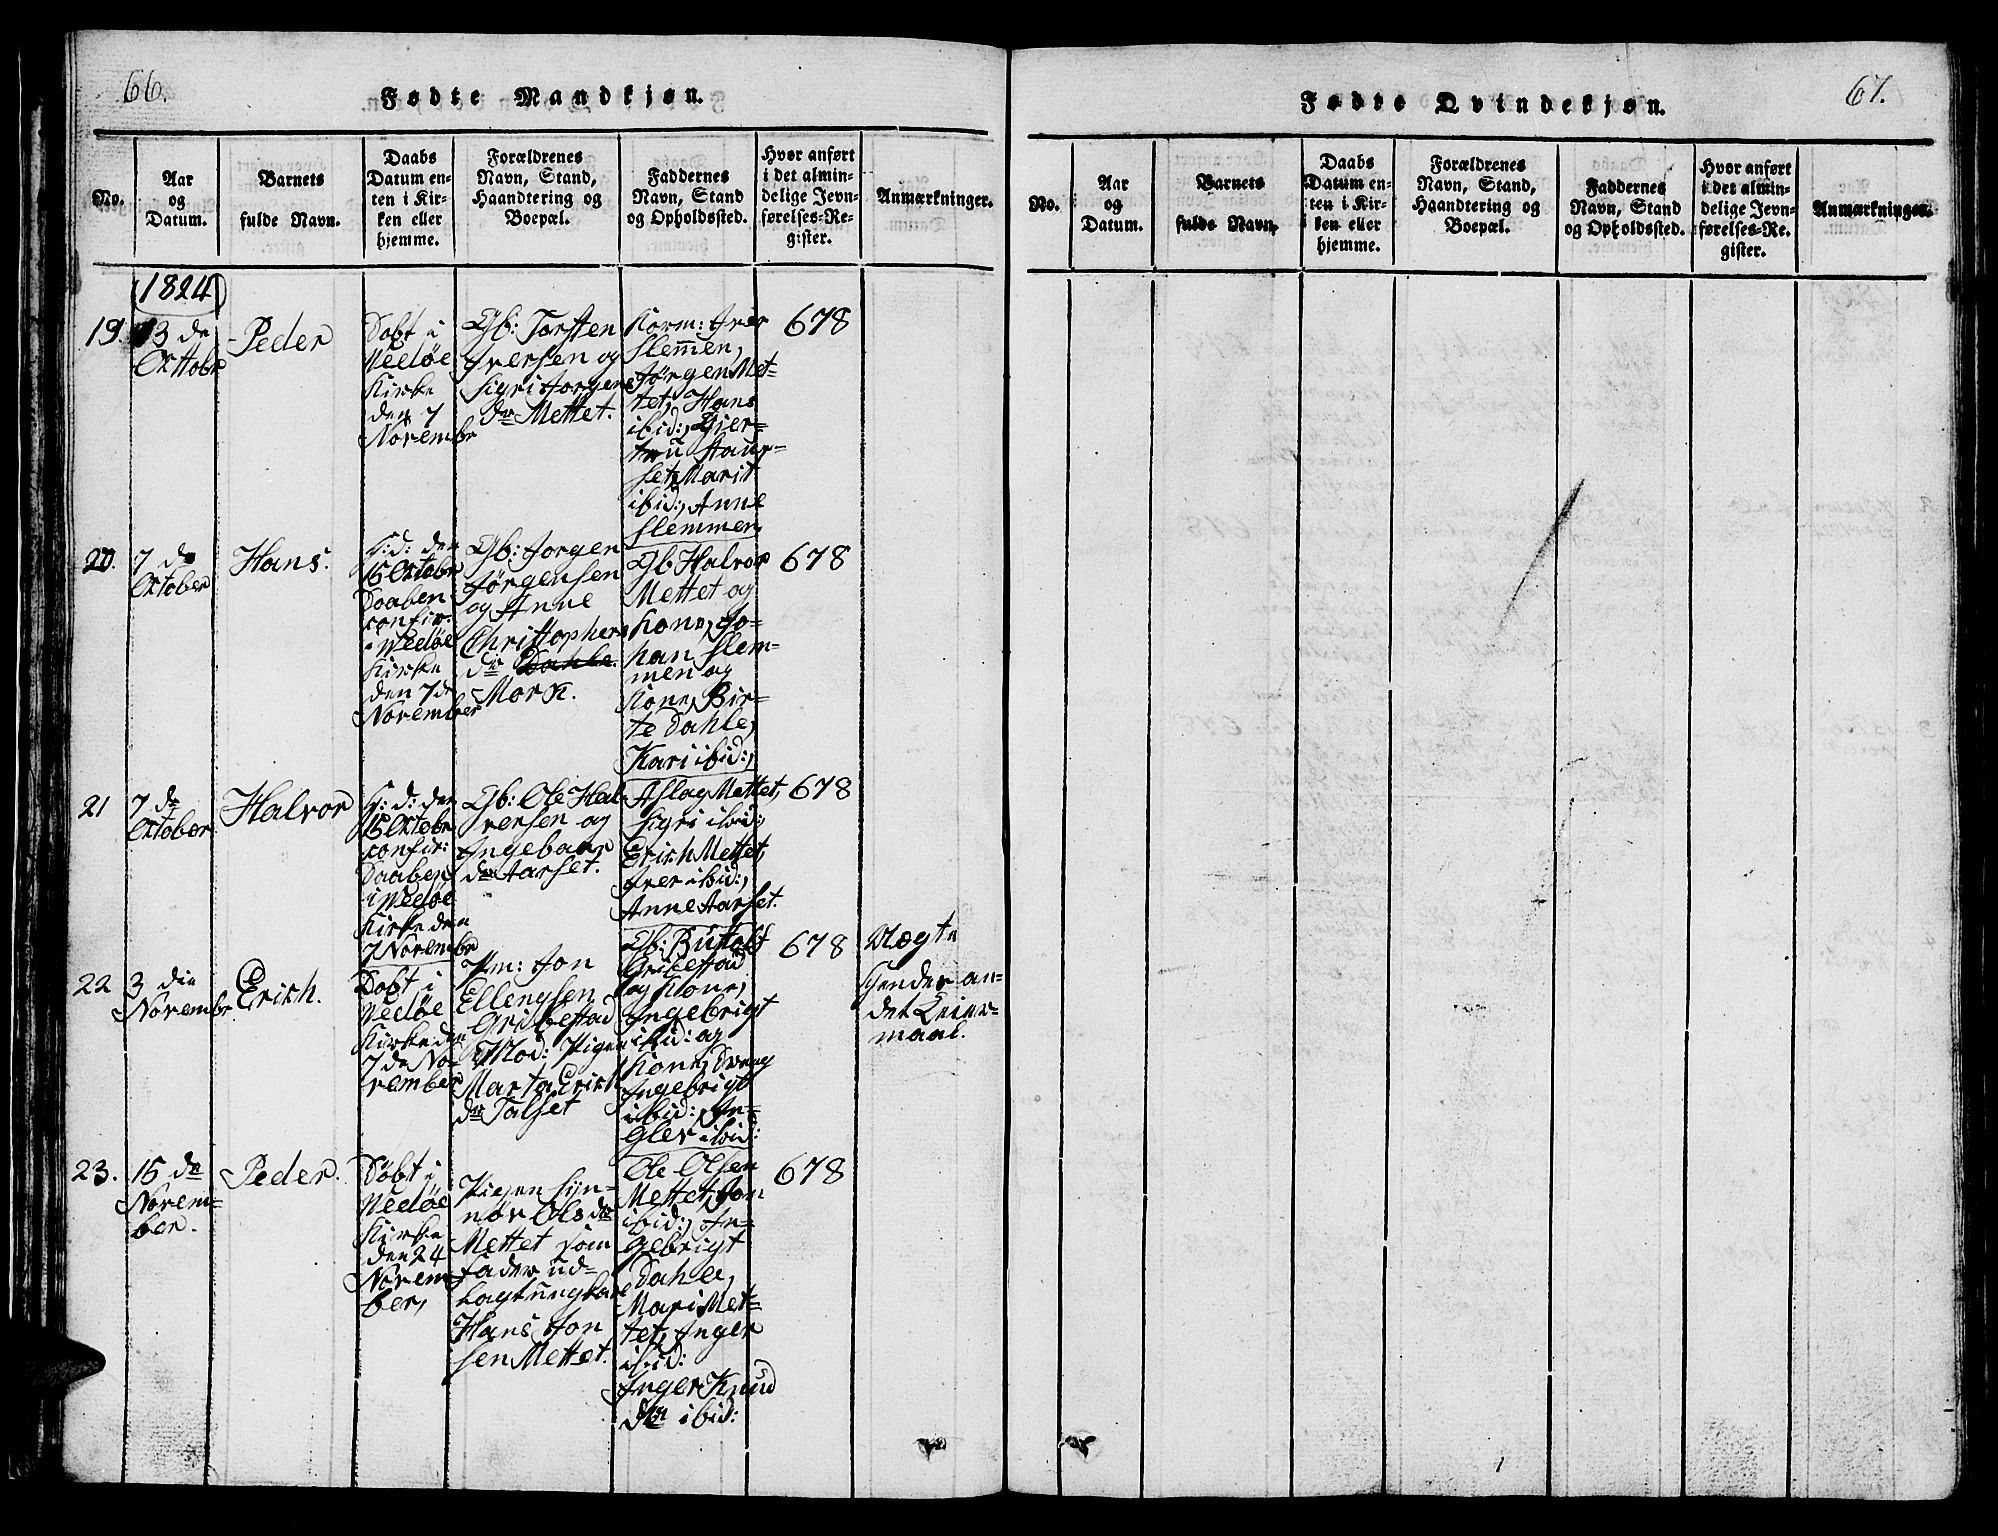 66.
Fødte Mandkjøn.
No.
Aar
og
Datum.
Barnets
fulde Navn.
Daabs
Datum en-
ten i Kir-
ken eller
hjemme.
Forældrenes
Navn, Stand,
Haandtering og
Boepæl.
Faddernes
Navn, Stand
og Opholdssted.
Hvor anført
i det almin-
delige Jevn-
førelses-Re-
gister.
Anmærkninger.
1824
19.
13 de
Octobr
Peder
Døbt i
Vedøe
Kirke
den 7
Novembr
Gb: Torsten
Iversen og
Sigri Jørgens
dr Mettet.
Korm: Iver
Slemmen,
Jørgen Met-
tet, Hans
ibid:, Gjer-
tru Staur-
set, Marit
ibid:, Anne
Slemmen
678
20.
7 de
October
Hans.
h: d: den
15 Octobr
Daaben
confir:
i Vedøe
Kirke
den 7de
November
Gb: Jørgen
Jørgensen
og Anne
Christophers
dr Dahle.
Mork.
Gb Halvor
Mettet og
Kone, Jo-
han Slem-
men og
Kone, Bir-
te Dahle,
Kari ibid:,
678
21
7 de
October
Halvor
h: d: den
15 Octobr
confir:
Daaben
i Vedøe
Kirke den
7 Novembr
Gb: Ole Hal-
versen og
Ingebaar
dr Aarset.
Aslag Mettet,
Sigri ibid:,
Erich Mettet,
Iver ibid:,
Anne Aarset.
678
22
3 die
Novembr.
Erich.
Døbt i
Vedøe
Kirke den
7de No-
vember
Pm: Jon
Ellengsen
Gribestad
Mod: Pigen
Marta Erich
dr Talset
Gb: Butolf
Gribestad
og Kone,
Ingebrigt
ibid: og
Kone, Dreng
Ingebrigt
ibid:, In-
gler ibid:
678
Ægte
Hendes an-
det Leier-
maal.
23.
15 de
Novem-
ber.
Peder.
Døbt i
Vedøe
Kirke
den 24
Novem-
ber,
Pigen Syn-
nør Ols dr
Mettet som
Fader ud-
lagt Ungkarl
Hans Jon
sen Mettet.
Ole Olsen
Mettet, Jon
ibid:, In-
gebrigt
Dahle,
Mari Met-
tet, Inger
ibid:
Inger Knud
dr ibid:
678
67.
Fødte Qvindekjøn.
No.
Aar
og
Datum.
Barnets
fulde Navn.
Daabs
Datum en-
ten i Kir-
ken eller
hjemme.
Forældrenes
Navn, Stand,
Haandtering og
Boepæl.
Faddernes
Navn, Stand
og Opholdssted.
Hvor anført
i det almin-
delige Jevn-
førelses-Re-
gister.
Anmærkninger.